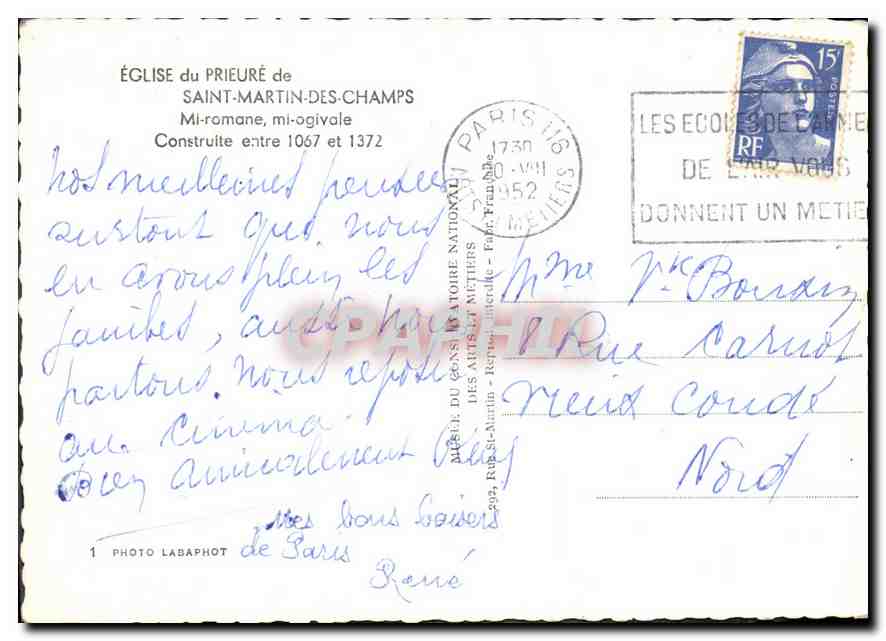 ÉGLISE du PRIEURÉ de
SAINT-MARTIN-DES-CHAMPS
Mi-romane, mi-ogivale
Construite entre 1067 et 1372
Nos meilleures pensées
surtout que nous
en avons plein les
jambes, aussi nous
partons nous reposer
au cinéma.
Bien amicalement
mes bons baisers
de Paris
René
1 PHOTO LABAPHOT
MUSÉE DU CONSERVATOIRE NATIONAL
DES ARTS ET MÉTIERS
292, Rue St-Martin - Reproduction Interdite - Fabr. Française
PARIS 116
1730
1952
METIERS
15F
POSTES
RF
LES ECOLES DE L'ARMEE
DE L'AIR VOUS
DONNENT UN METIER
CPAPHIL
Mme Vk Boudin
8 Rue Carnot
Vieux Condé
Nord